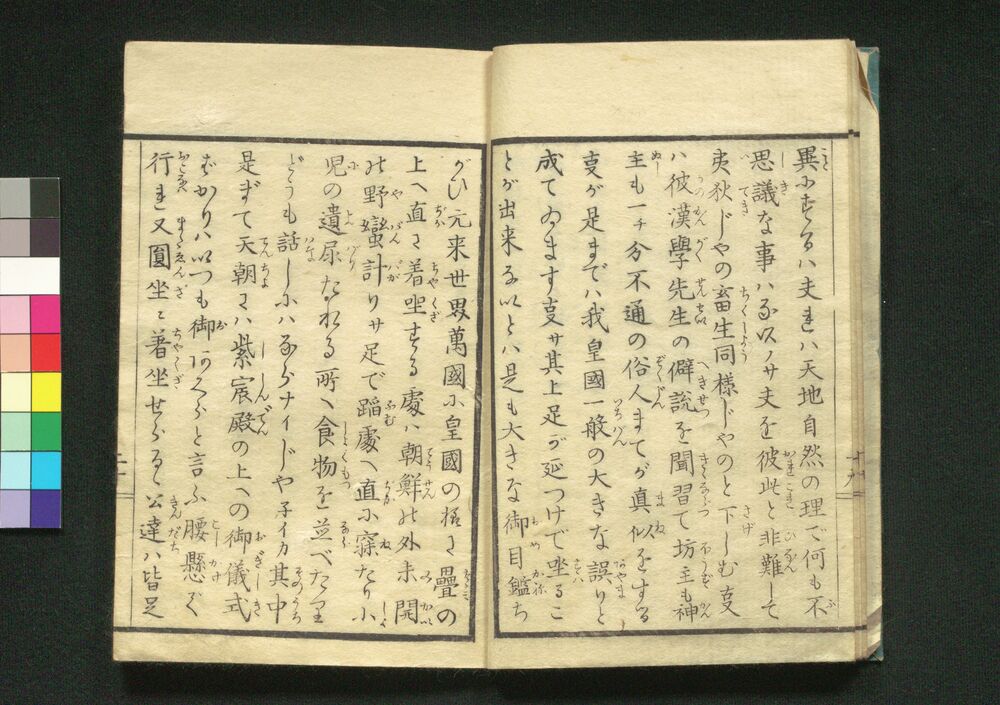 異にするハ夫ハ天地自然の理で何も不
思議な事ハないノサ夫を彼此と非難して
夷狄じやの畜生同様じやのと下しむ事
ハ彼漢學先生の僻説を聞習て坊主も神
主も一チ分不通の俗人までが真似をする
事が是までハ我皇國一般の大きな誤りと
成てゐます事サ其上足が延つけで坐るこ
とが出来ないとハ是も大きな御目鑑ち
がひ元来世界萬國に皇國の様に疊の
上へ直に着坐する處ハ朝鮮の外未開
の野蠻計りサ足で蹈處へ直に寐たり小
児の遺尿たれる所へ食物を並べたり
どうも話しにハならナイじやネイカ其中
是まで天朝にハ紫宸殿の上への御儀式
ばかりハいつも御と言ふ腰懸で
行れ又圓坐に着坐せらるゝ公達ハ皆足